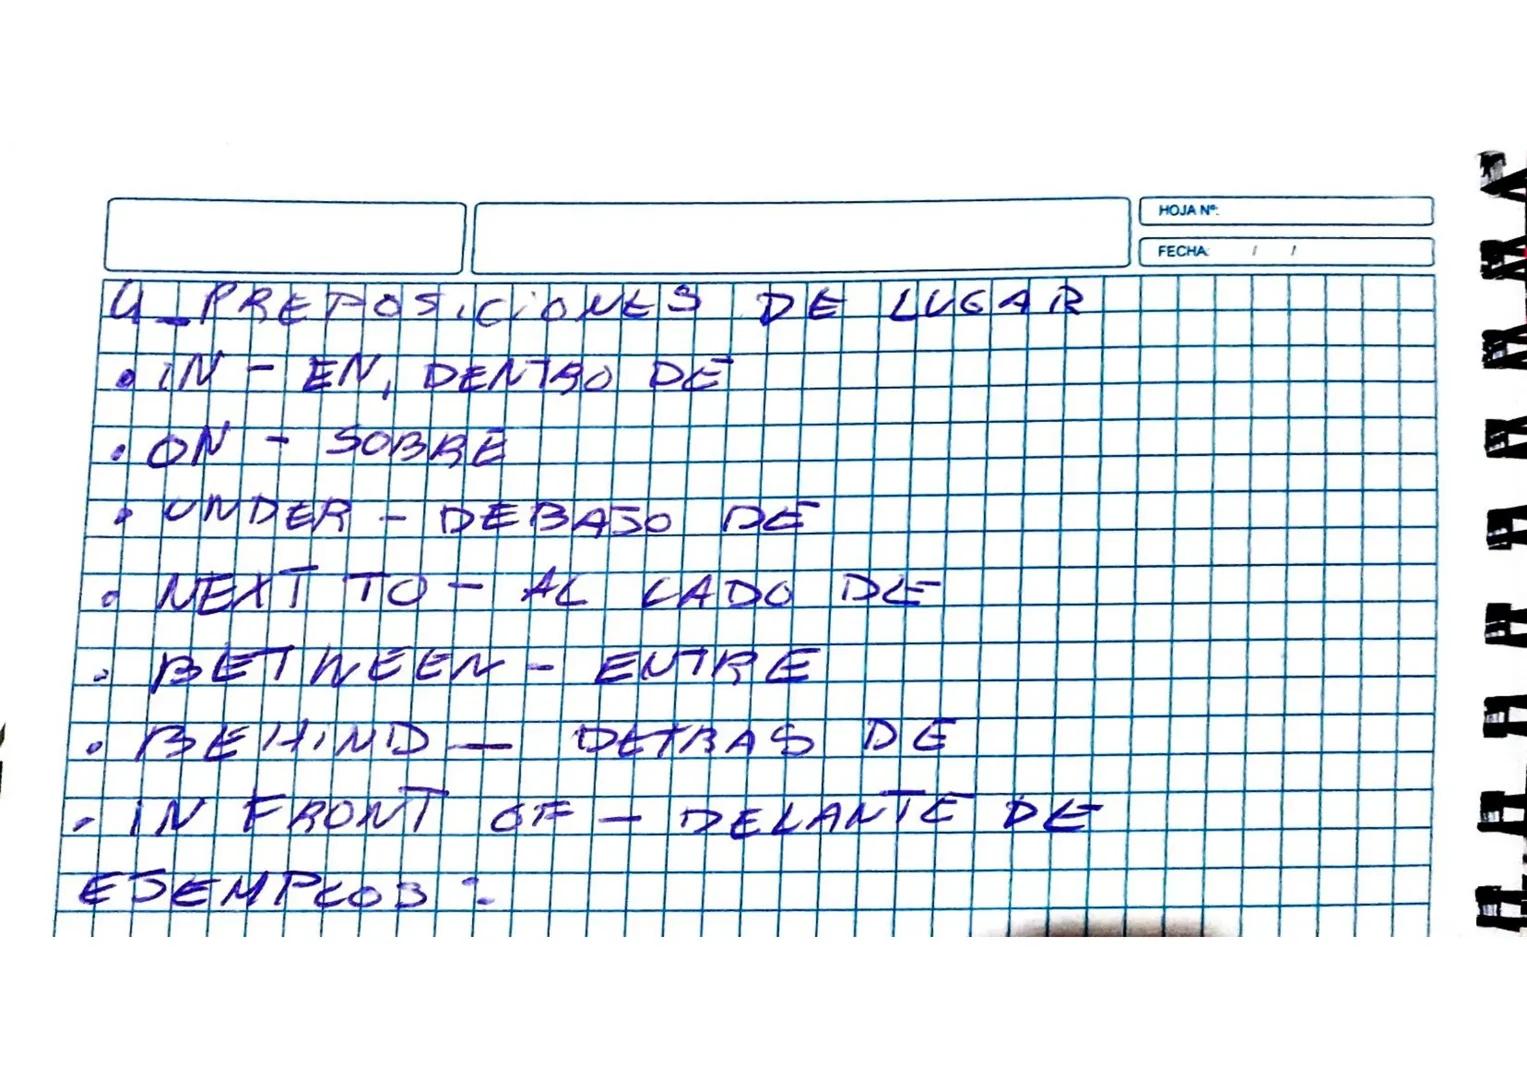 HOJA Nº:
FECHA: / /
4_PREPOSICIONES DE LUGAR
• IN - EN, DENTRO DE
• ON - SOBRE
• UNDER - DEBAJO DE
• NEXT TO - AL LADO DE
• BETWEEN - ENTRE
• BEHIND - DETRAS DE
- IN FRONT OF - DELANTE DE
EJEMPLOS: